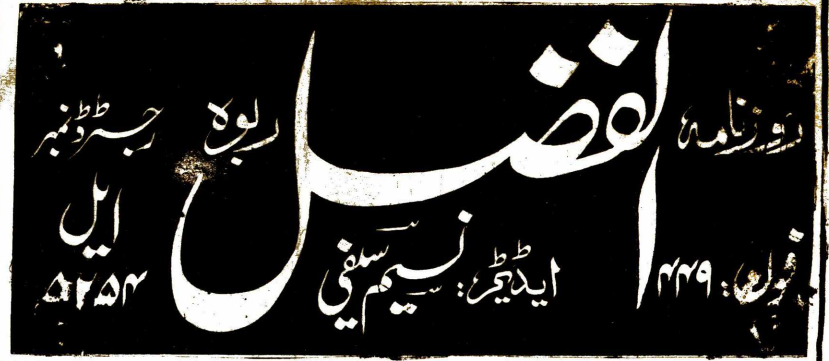 روزنامہ
الفضل
ربوہ
رجسٹرڈ نمبر
ایل
۵۲۵۴
ایڈیٹر: نسیم سیفی
فون: ۴۴۹